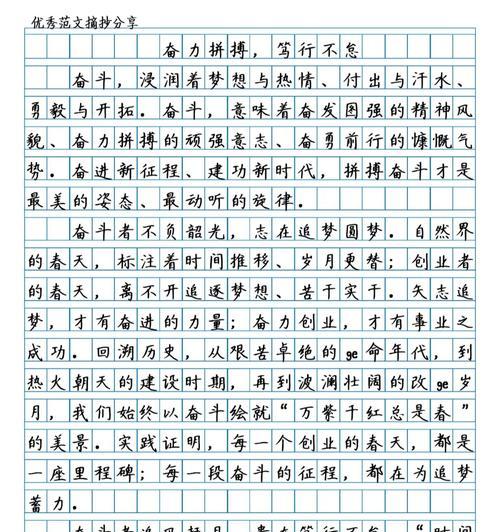 优秀范文摘抄分享
奋力拼搏，笃行不怠
奋斗，浸润着梦想与热情、付出与汗水、
勇毅与开拓．奋斗，意味着奋发图强的精神风
貌、奋力拼搏的顽强意志、奋勇前行的慷慨气
势．奋进新征程、建功新时代，拼搏奋斗才是
最美的姿态、最动听的旋律．
奋斗者不负韶光，志在追梦圆梦．自然界
的春天，标注着时间推移、岁月更替；创业者
的春天，离不开追逐梦想、苦干实干．矢志追
梦，才有奋进的力量；奋力创业，才有事业之
成功．回溯历史，从艰苦卓绝的ge命年代，到
热火朝天的建设时期，再到波澜壮阔的改ge岁
月，我们始终以奋斗绘就“万紫千红总是春”
的美景．实践证明，每一个创业的春天，都是
一座里程碑；每一段奋斗的征程，都在为追梦
蓄力．